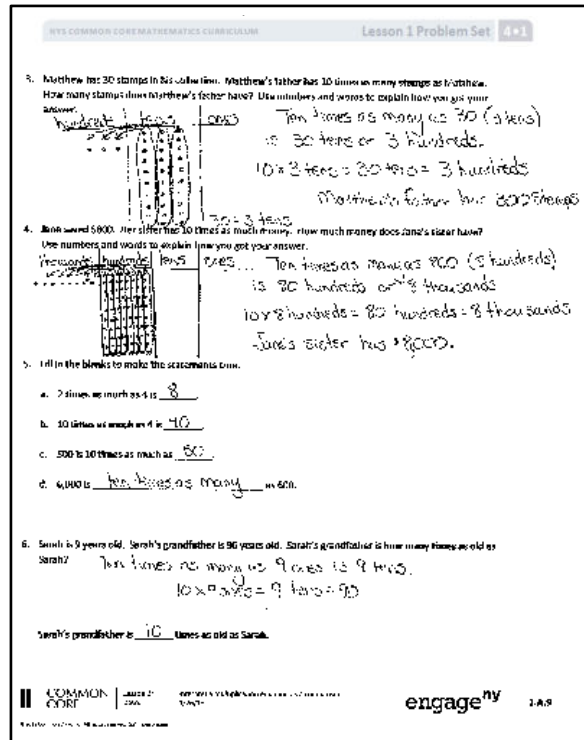 NYS COMMON CORE MATHEMATICS CURRICULUM
Lesson 1 Problem Set 4•1
3. Matthew has 30 stamps in his collection. Matthew's father has 10 times as many stamps as Matthew.
How many stamps does Matthew's father have? Use numbers and words to explain how you got your
answer.
hundreds tens ones
Ten times as many as 30 (3 tens)
is 30 tens or 3 hundreds.
10 x 3 tens = 30 tens = 3 hundreds
Matthew's father has 300 stamps
30 = 3 tens
4. Jane saved $800. Her sister has 10 times as much money. How much money does Jane's sister have?
Use numbers and words to explain how you got your answer.
thousands hundreds tens ones
Ten times as many as 800 (8 hundreds)
is 80 hundreds or 8 thousands
10 x 8 hundreds = 80 hundreds = 8 thousands
Jane's sister has $8,000.
5. Fill in the blanks to make the statements true.
a. 2 times as much as 4 is 8.
b. 10 times as much as 4 is 40.
c. 500 is 10 times as much as 50.
d. 6,000 is ten times as many as 600.
6. Sarah is 9 years old. Sarah's grandfather is 90 years old. Sarah's grandfather is how many times as old as
Sarah?
Ten times as many as 9 ones is 9 tens.
10 x 9 ones = 9 tens = 90
Sarah's grandfather is 10 times as old as Sarah.
COMMON
CORE
Lesson 1:
engage ny
1.A.9